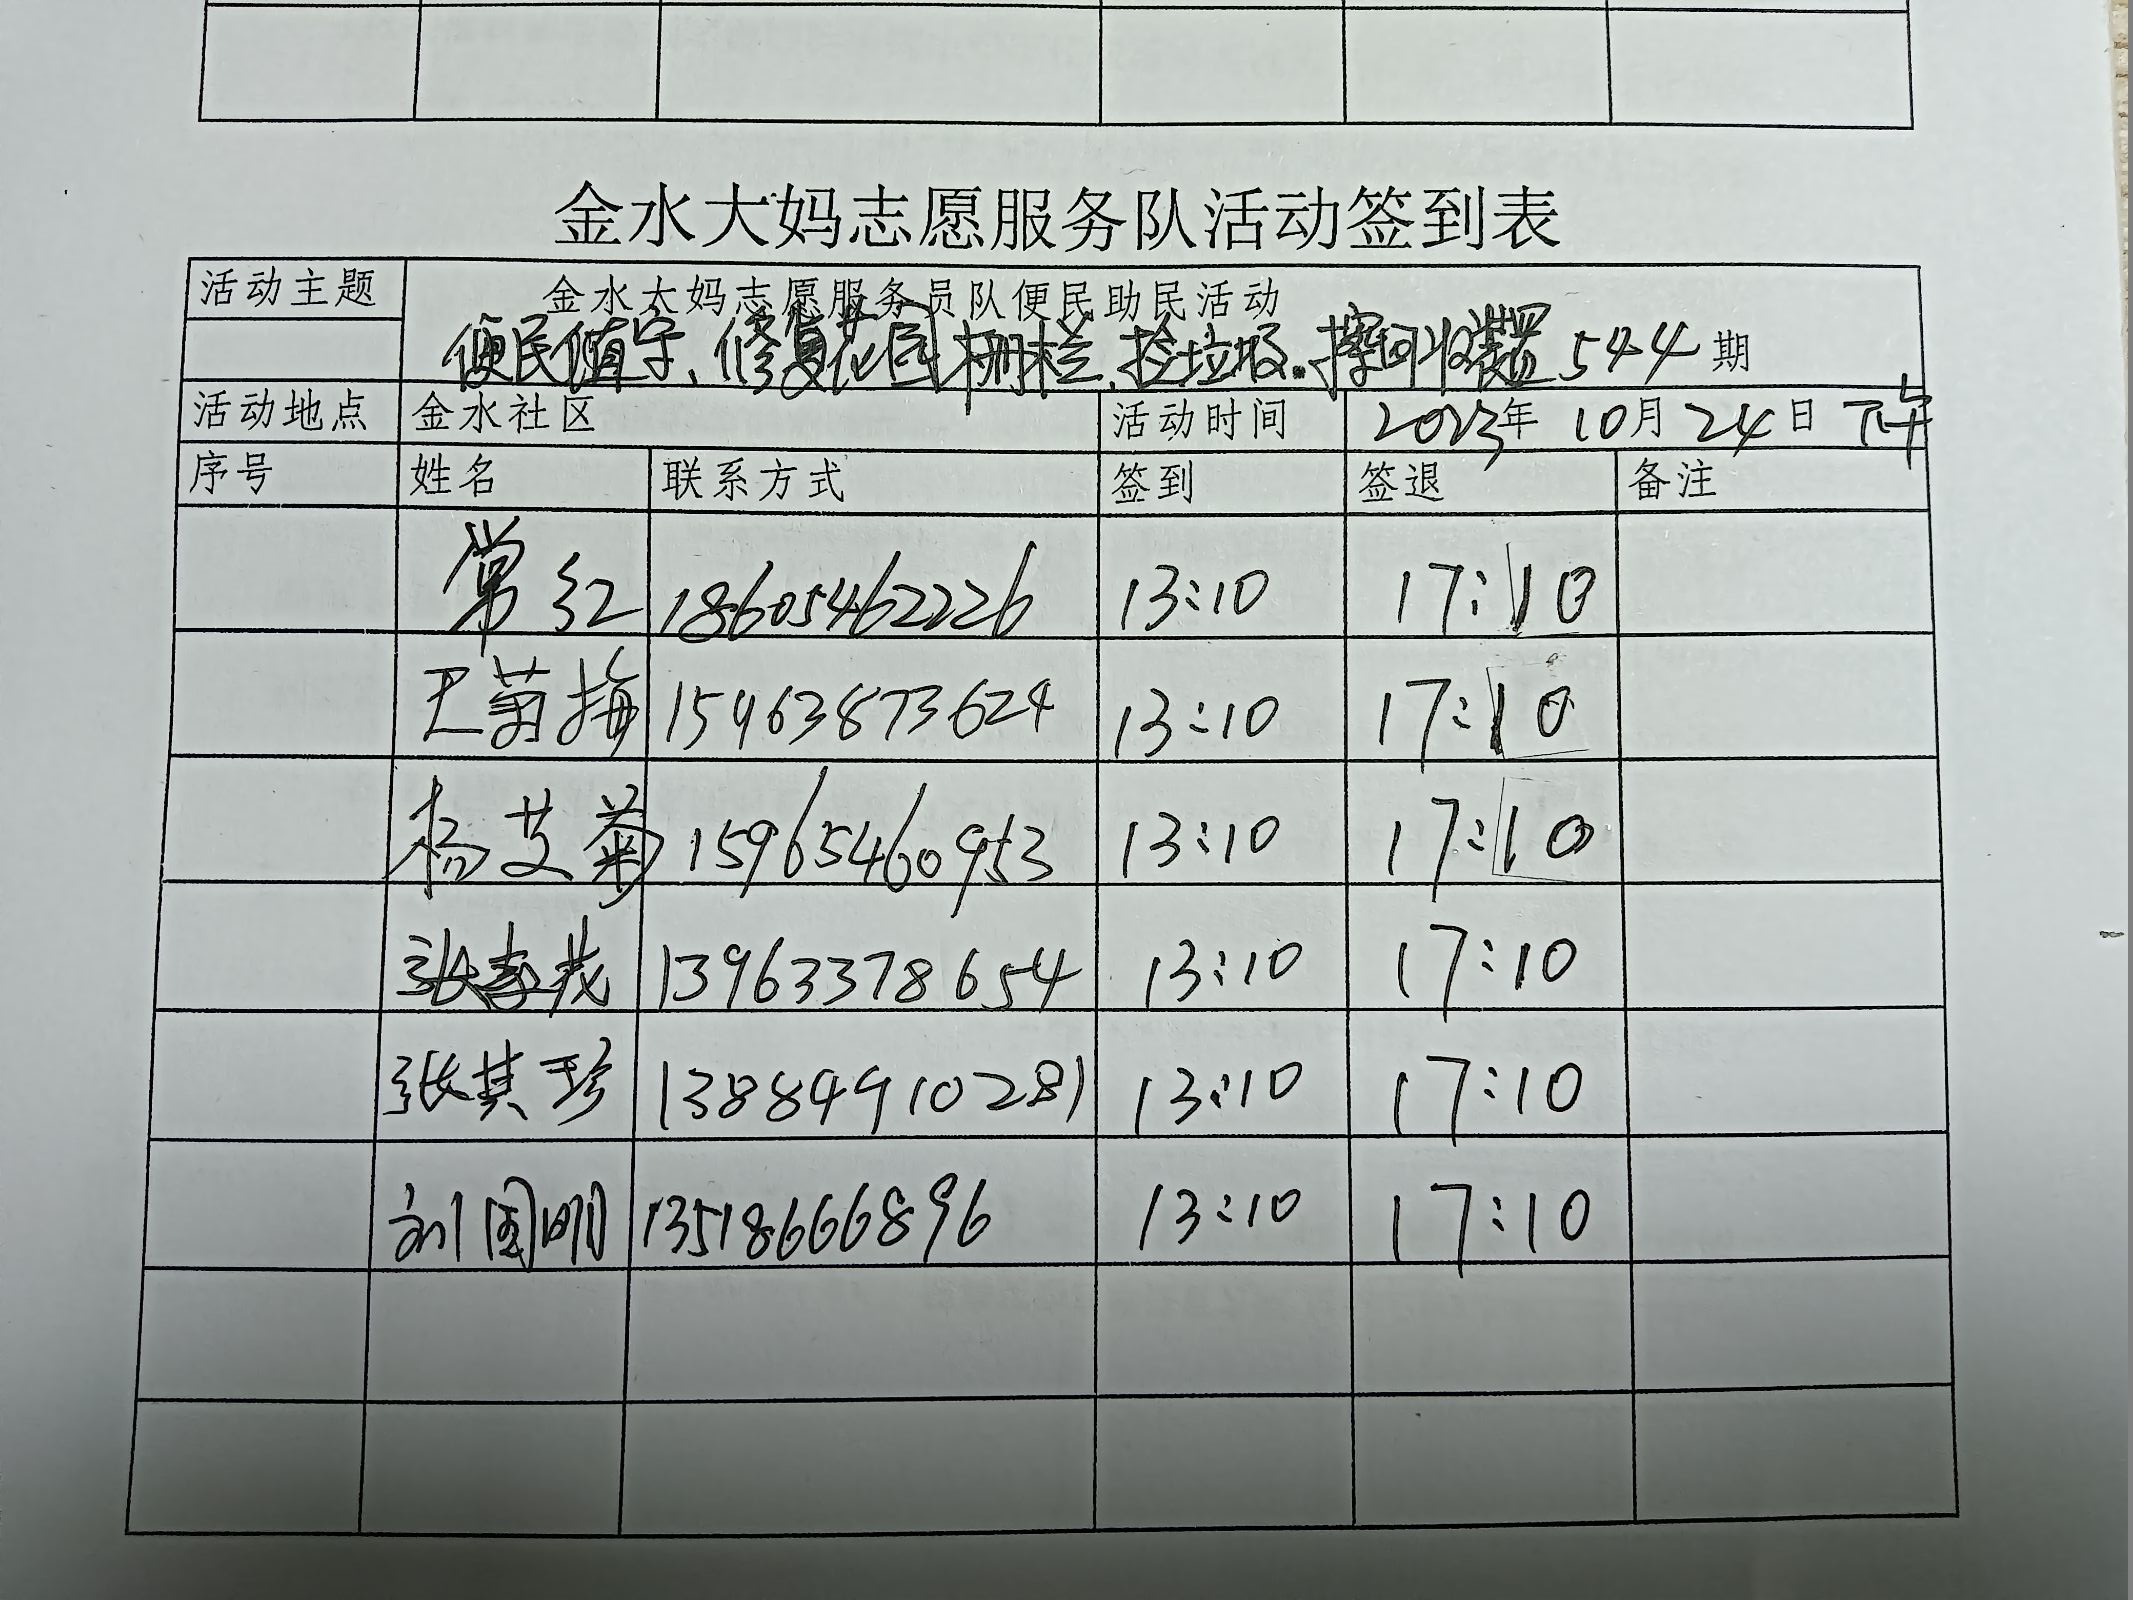 金水大妈志愿服务队活动签到表
活动主题 金水大妈志愿服务员队便民助民活动
便民值守、修复花园栅栏、捡垃圾、擦回收装置 544 期
活动地点 金水社区 活动时间 2023年 10月 24日 下午
序号 姓名 联系方式 签到 签退 备注
常红 18605462226 13:10 17:10
王菊梅 15963873624 13:10 17:10
杨艾菊 15965460953 13:10 17:10
张孝茂 13963378654 13:10 17:10
张其珍 13884910281 13:10 17:10
刘国明 13518666896 13:10 17:10